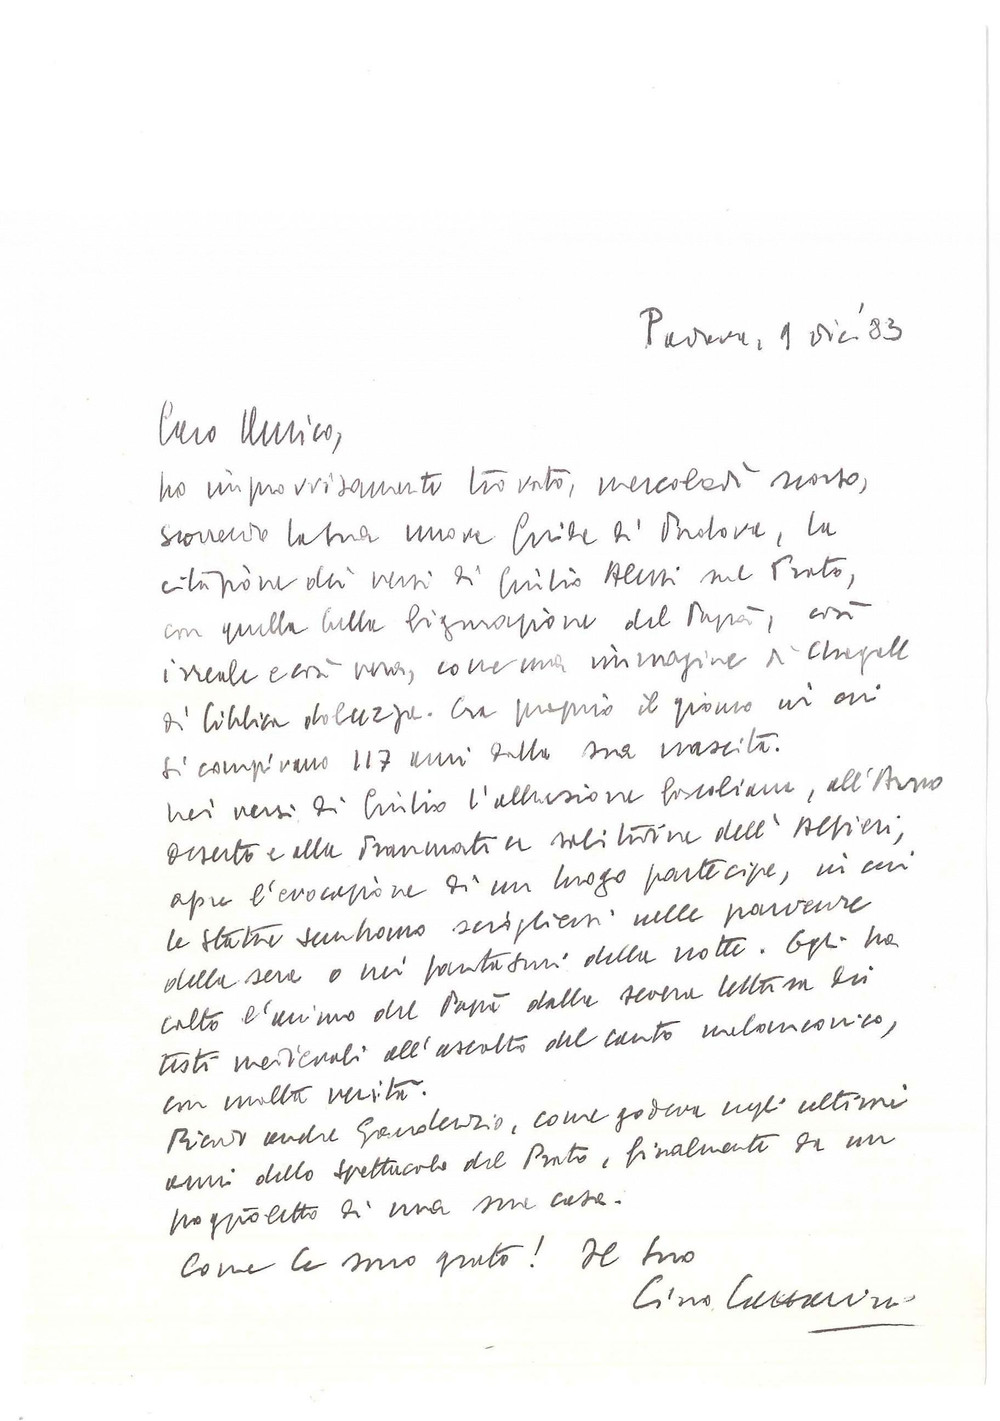 Padova, 9 dic. '83
Caro Amico,
ho improvvisamente trovato, mercoledì scorso,
scorrendo la Sua nuova Guida di Padova, la
citazione dei versi di Giulio Alessi sul Prato,
con quella bella figurazione del Papà, così
irreale e così vera, come una immagine di Chagall
di biblica dolcezza. Era proprio il giorno in cui
si compivano 117 anni dalla sua nascita.
Nei versi di Giulio l'allusione foscoliana, all'Arno
deserto e alla drammatica solitudine dell'Alfieri,
apre l'evocazione di un luogo partecipe, in cui
le statue sembrano sciogliersi nelle parvenze
della sera o nei fantasmi della notte. Egli ha
colto l'animo del Papà dalla severa lettura dei
testi medievali all'ascolto del canto melanconico,
con molta verità.
Ricordo anche Gaudenzio, come godeva negli ultimi
anni dello spettacolo del Prato, finalmente da un
poggioletto di una sua casa.
Come Le sono grato! Il Suo